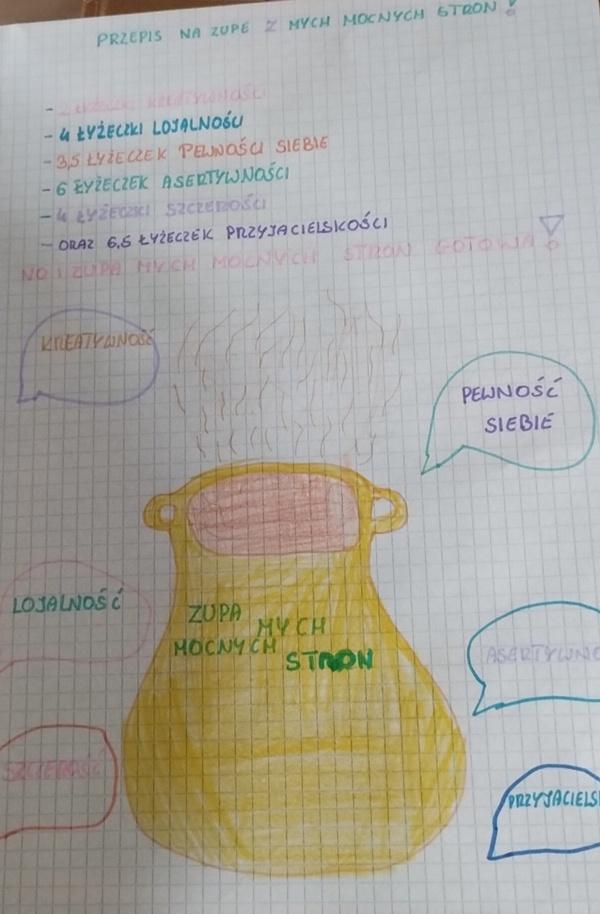 PRZEPIS NA ZUPE Z MYCH MOCNYCH STRON!
- 2 ŁYŻECZKI KREATYWNOŚCI
- 4 ŁYŻECZKI LOJALNOŚCI
- 3,5 ŁYŻECZEK PEWNOŚCI SIEBIE
- 6 ŁYŻECZEK ASERTYWNOŚCI
- 4 ŁYŻECZKI SZCZEROŚCI
- ORAZ 6,5 ŁYŻECZEK PRZYJACIELSKOŚCI
NO I ZUPA MYCH MOCNYCH STRON GOTOWA!
KREATYWNOŚĆ
PEWNOŚĆ
SIEBIE
LOJALNOŚĆ
ZUPA MYCH
MOCNYCH STRON
ASERTYWNO
SZCZEROŚĆ
PRZYJACIELS